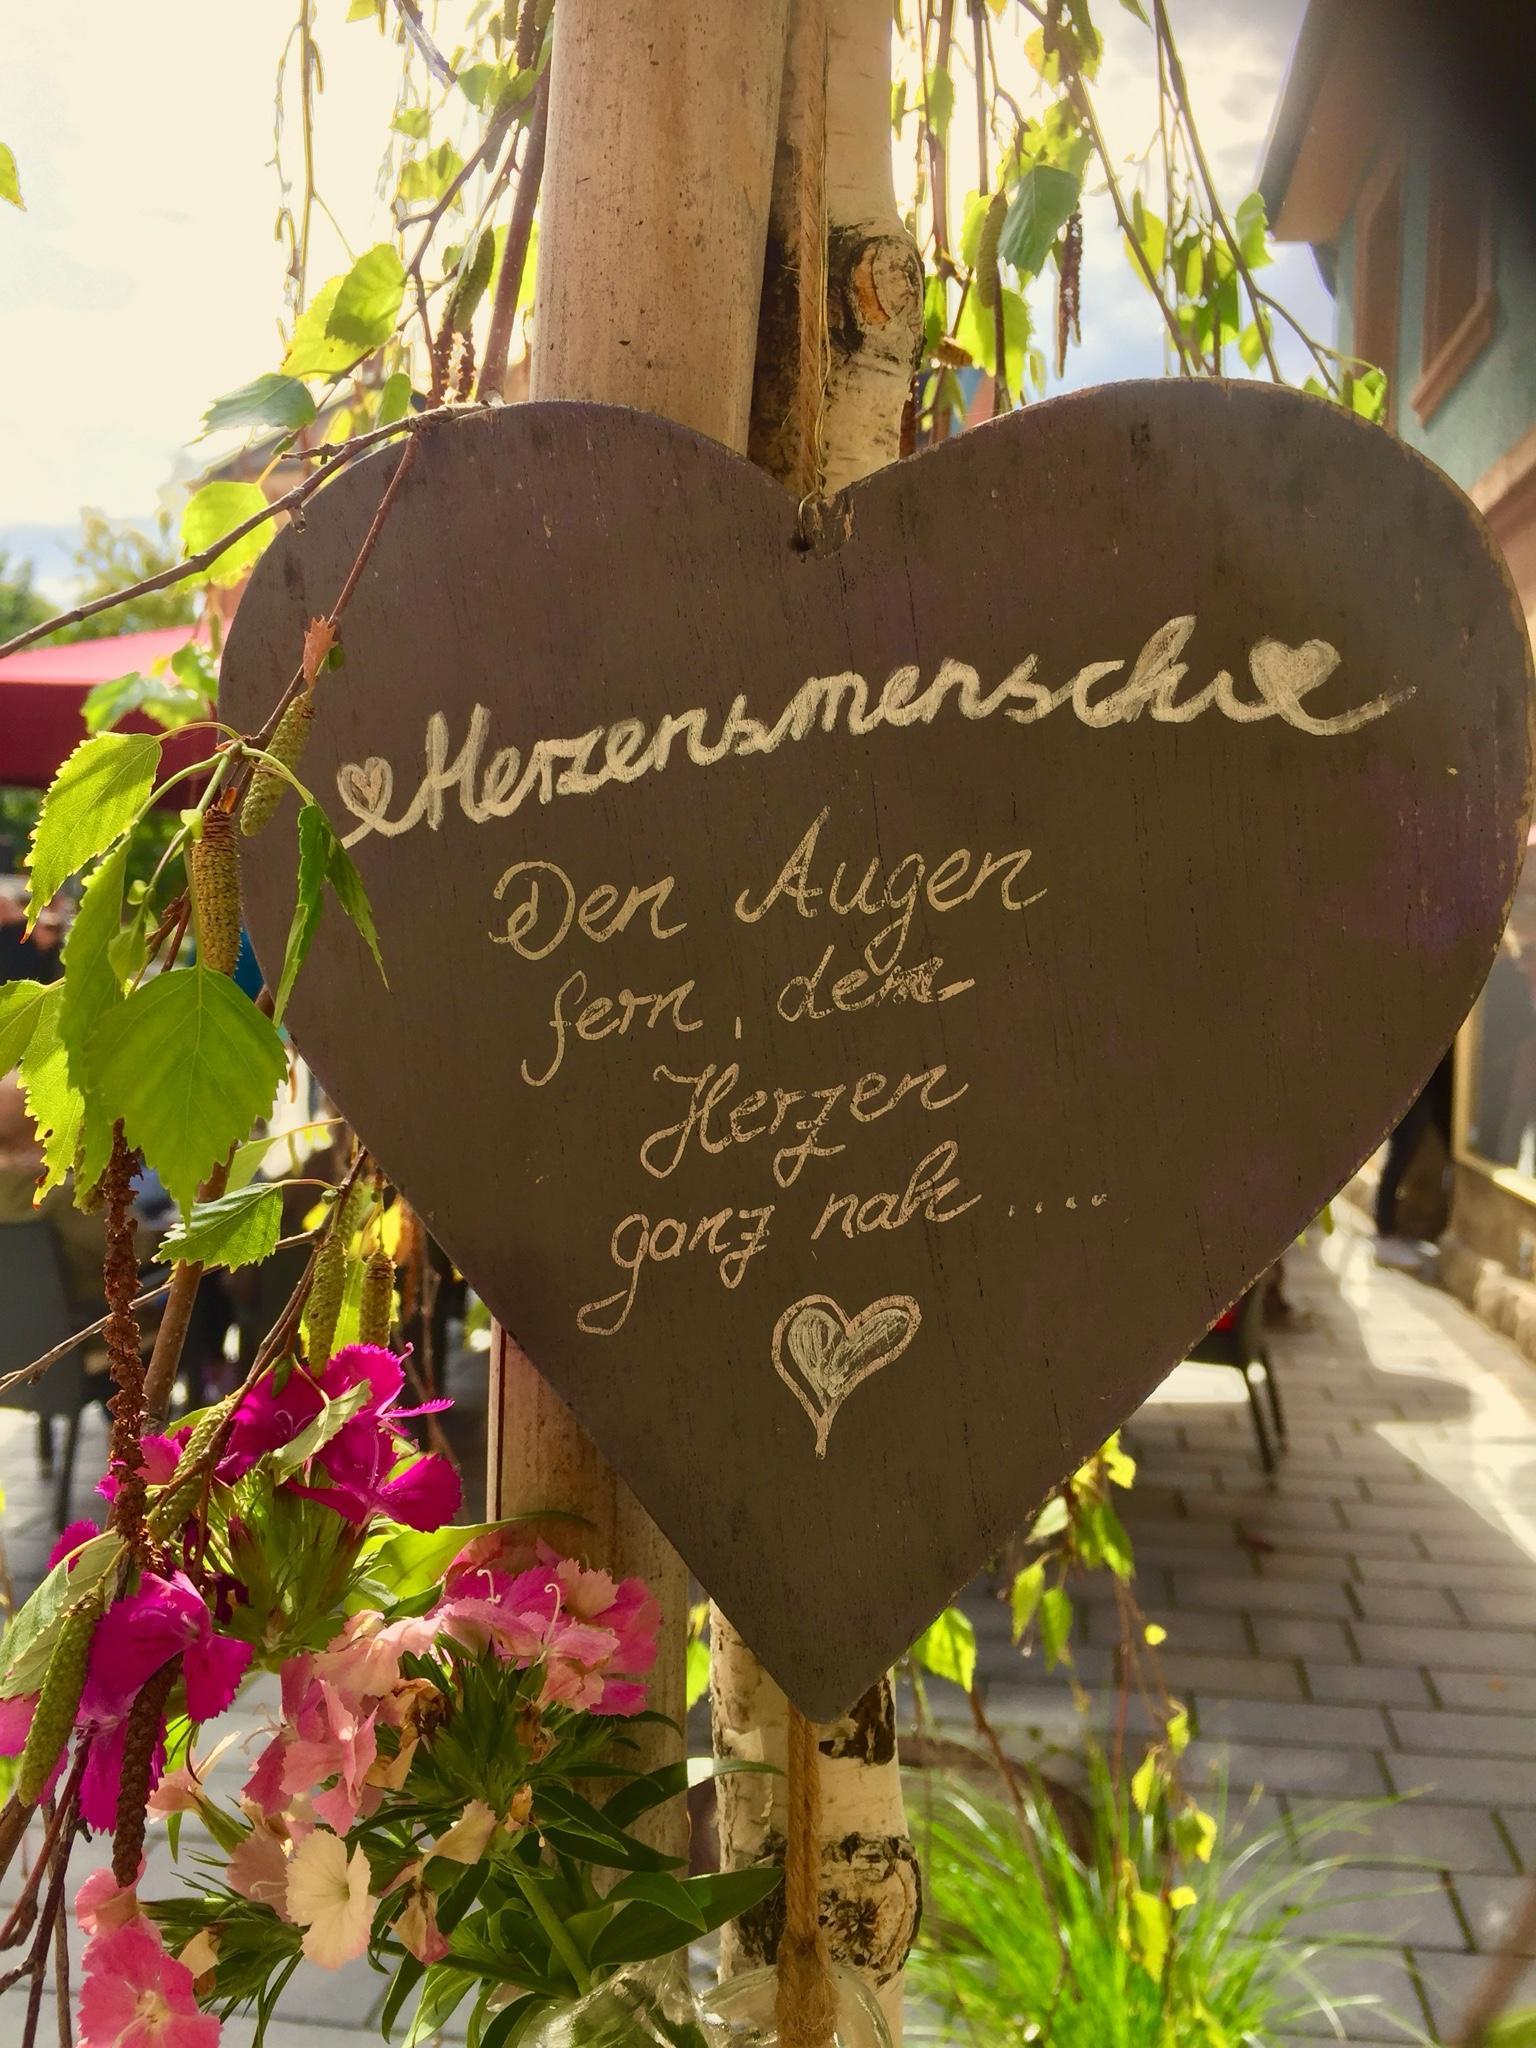 Herzensmensch
Den Augen
fern, dem
Herzen
ganz nah .....